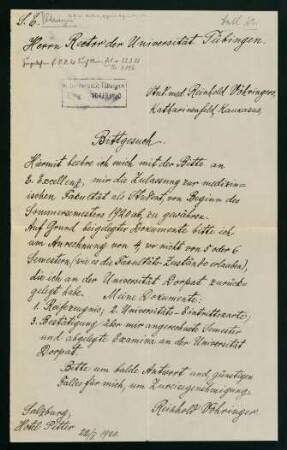 S. E.
Herrn Rector der Universität Tübingen.
Stud. med. Reinhold Vöhringer,
Katharinenfeld Kaukasus.
Bittgesuch
Hiermit kehre ich mich mit der Bitte an
E. Excellenz, mir die Zulassung zur medizini-
schen Facultät als Student, von Beginn des
Sommersemesters 1920 ab, zu gewähren.
Auf Grund beigelegter Documente bitte ich
um Anrechnung von 4, wo nicht von 5 oder 6
Semestern (wie es die Facultäts-Zustände erlauben),
die ich an der Universität Dorpat zurück-
gelegt habe. Meine Documente:
1. Reifezeugnis; 2. Universitäts-Eintrittskarte,
3. Bestätigung über mir angerechnete Semester
und abgelegte Examina an der Universität
Dorpat.
Bitte um balde Antwort und, günstigen
Falles für mich, um Zuzugsgenehmigung.
Reinhold Vöhringer.
Salzburg,
Hotel Pitter
1920.